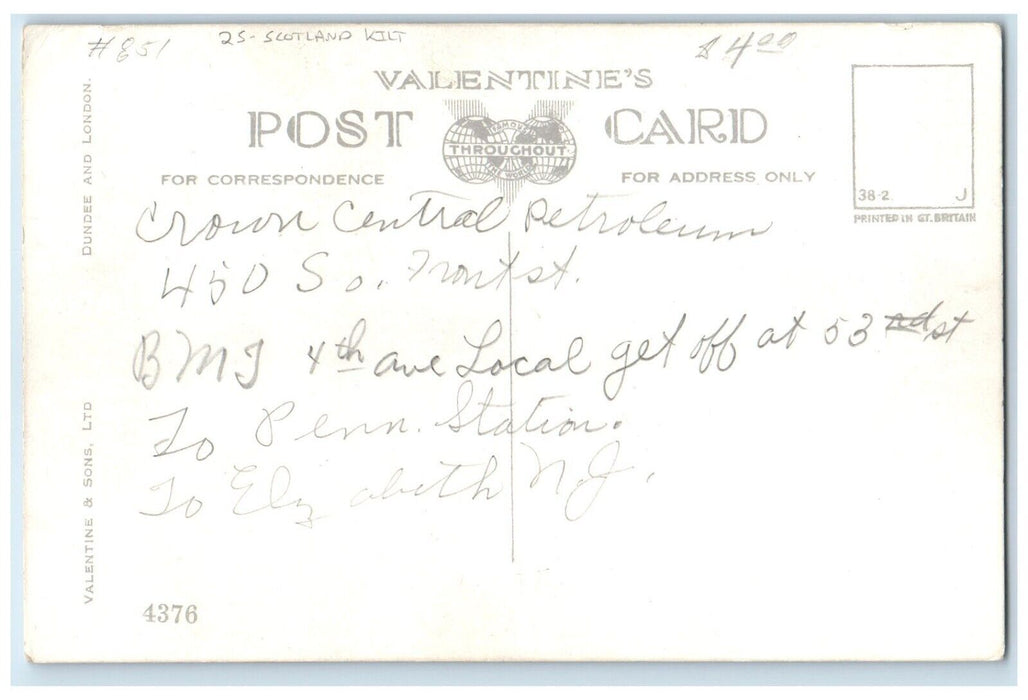 #851 25-SCOTLAND KILT $4.00
VALENTINE'S
POST CARD
FAMOUS
THROUGHOUT
THE WORLD
FOR CORRESPONDENCE
FOR ADDRESS ONLY
38-2 J
PRINTED IN GT. BRITAIN
Crown Central Petroleum
450 So. Front st.
BMT 4th ave Local get off at 53 nd st
To Penn. Station.
To Elizabeth N.J.
4376
VALENTINE & SONS, LTD
DUNDEE AND LONDON.